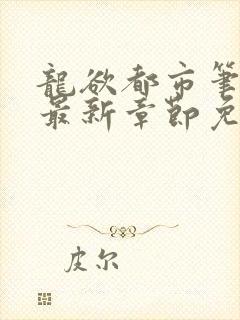 龍欲都市筆
最新章節免
皮尔